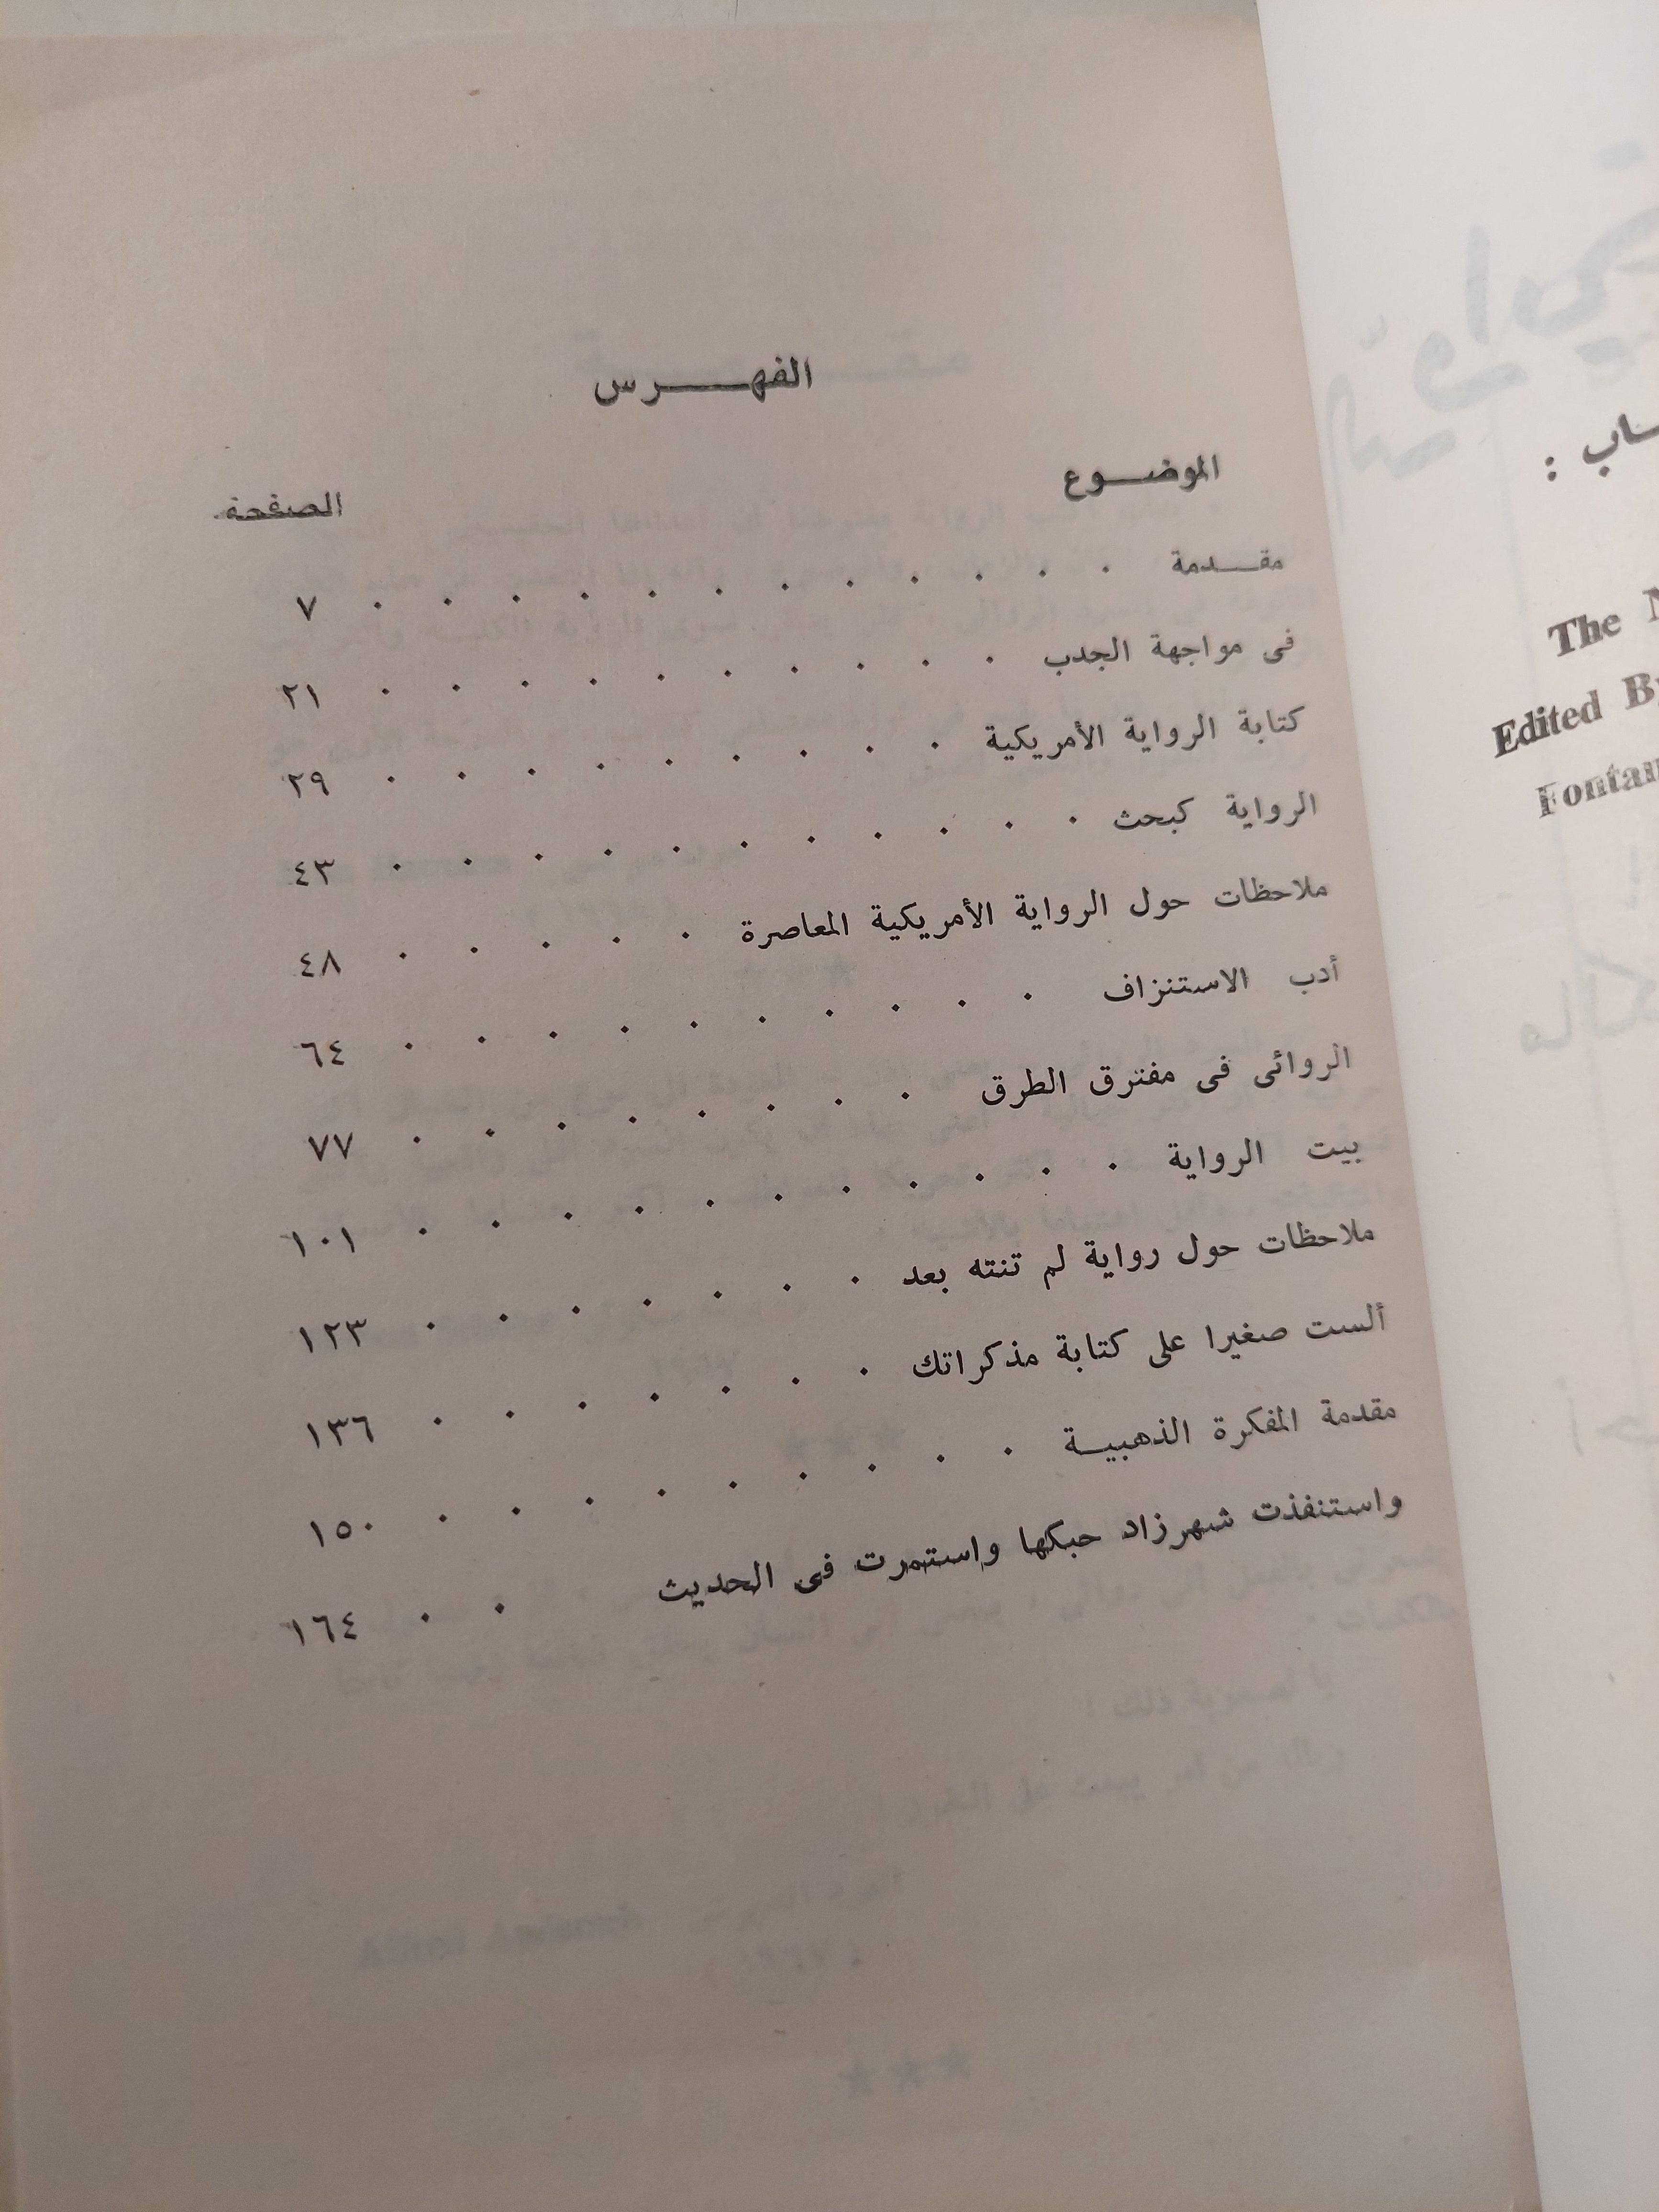 الفهرس
الموضوع الصفحة
مقدمة . . . . . . . . . . . . ٧
فى مواجهة الجدب . . . . . . . . . . ٢١
كتابة الرواية الأمريكية . . . . . . . . . ٢٩
الرواية كبحث . . . . . . . . . . . ٤٣
ملاحظات حول الرواية الأمريكية المعاصرة . . . . . ٤٨
أدب الاستنزاف . . . . . . . . . . ٦٤
الروائى فى مفترق الطرق . . . . . . . . ٧٧
بيت الرواية . . . . . . . . . . . ١٠١
ملاحظات حول رواية لم تنته بعد . . . . . . . ١٢٣
ألست صغيرا على كتابة مذكراتك . . . . . . . ١٣٦
مقدمة المفكرة الذهبية . . . . . . . . . ١٥٠
واستنفذت شهرزاد حبكها واستمرت فى الحديث . . ١٦٤
The
Edited